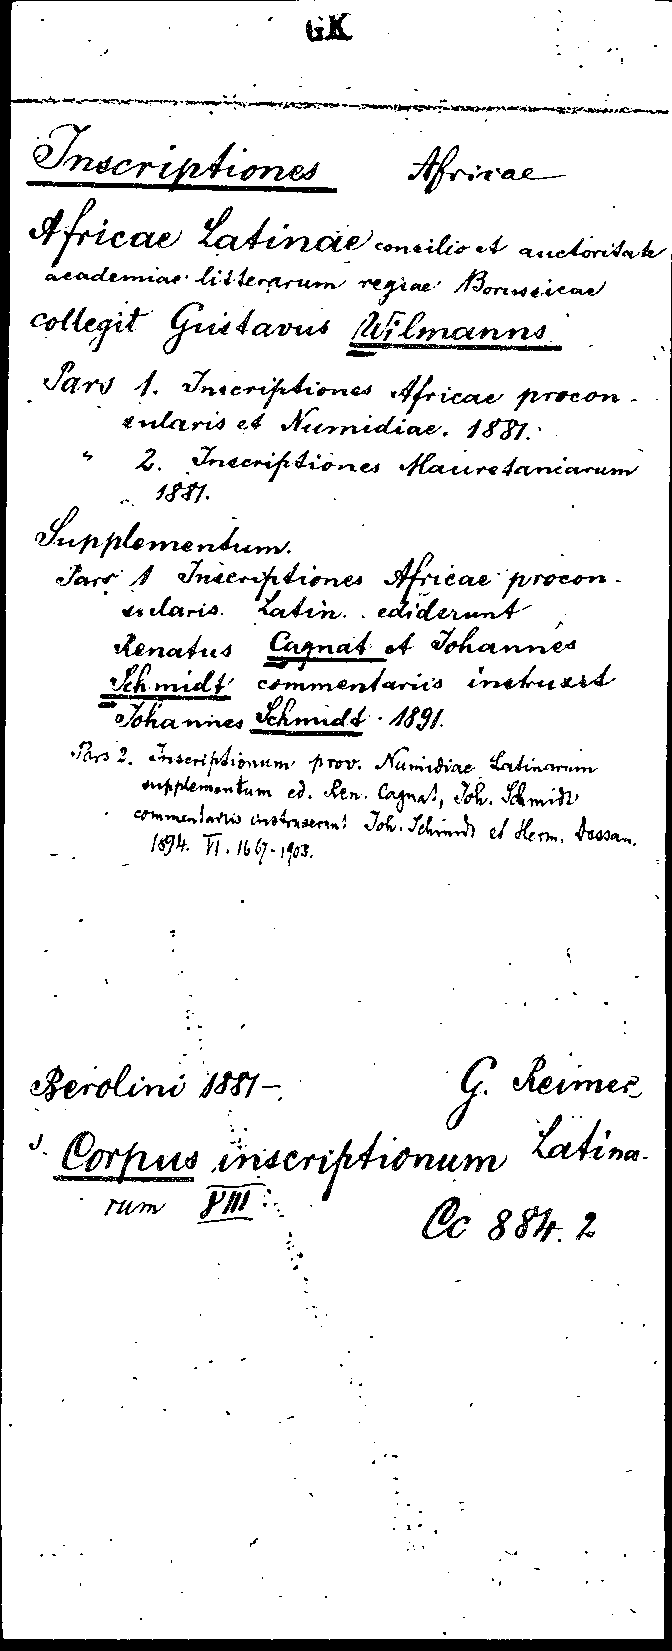 GK
Inscriptiones Africae
Africae Latinae consilio et auctoritate
academiae litterarum regiae Borussicae
collegit Gustavus Wilmanns
Pars 1. Inscriptiones Africae procon-
sularis et Numidiae. 1881.
" 2. Inscriptiones Mauretaniarum
1881.
Supplementum.
Pars 1 Inscriptiones Africae procon-
sularis Latin. ediderunt
Renatus Cagnat et Johannes
Schmidt commentariis instruxit
Johannes Schmidt. 1891.
Pars 2. Inscriptionum prov. Numidiae Latinarum
supplementum ed. Ren. Cagnat, Joh. Schmidt
commentariis instruxerunt Joh. Schmidt et Herm. Dessau.
1894. VI. 1667-1903.
Berolini 1881- G. Reimer
s. Corpus inscriptionum Latina-
rum VIII
Cc 884. 2